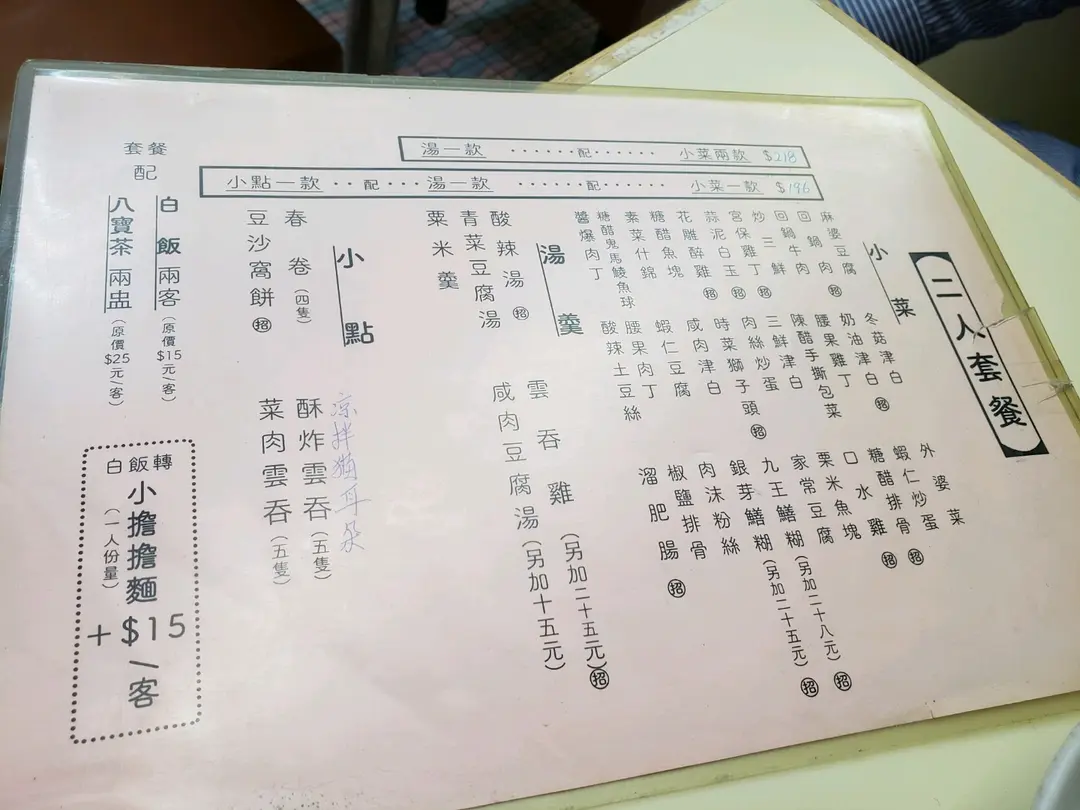 二人套餐
湯一款 ······配······ 小菜兩款 $218
小點一款 ··配···湯一款 ······配······ 小菜一款 $196
小菜
麻婆豆腐
回鍋肉㊙招
回鍋牛肉
炒三鮮
宮保雞丁 招
蒜泥白玉 招
花雕醉雞 招
糖醋魚塊
素菜什錦
糖醋鬼馬鯪魚球
醬爆肉丁
冬菇津白
奶油津白 招
腰果雞丁
陳醋手撕包菜
三鮮津白
肉絲炒蛋
時菜獅子頭 招
咸肉津白
蝦仁豆腐
腰果肉丁
酸辣土豆絲
外婆菜
蝦仁炒蛋
糖醋排骨 招
口水雞 招
粟米魚塊
家常豆腐
九王鱔糊(另加二十八元) 招
銀芽鱔糊(另加二十五元) 招
肉沫粉絲
椒鹽排骨
溜肥腸 招
湯羹
酸辣湯 招
青菜豆腐湯
粟米羹
雲吞雞(另加二十五元) 招
咸肉豆腐湯(另加十五元)
小點
春卷(四隻)
豆沙窩餅 招
涼拌貓耳朵
酥炸雲吞(五隻)
菜肉雲吞(五隻)
套餐
配
白飯兩客(原價$15元/客)
八寶茶兩盅(原價$25元/客)
白飯轉
小擔擔麵
(一人份量)
+$15/客